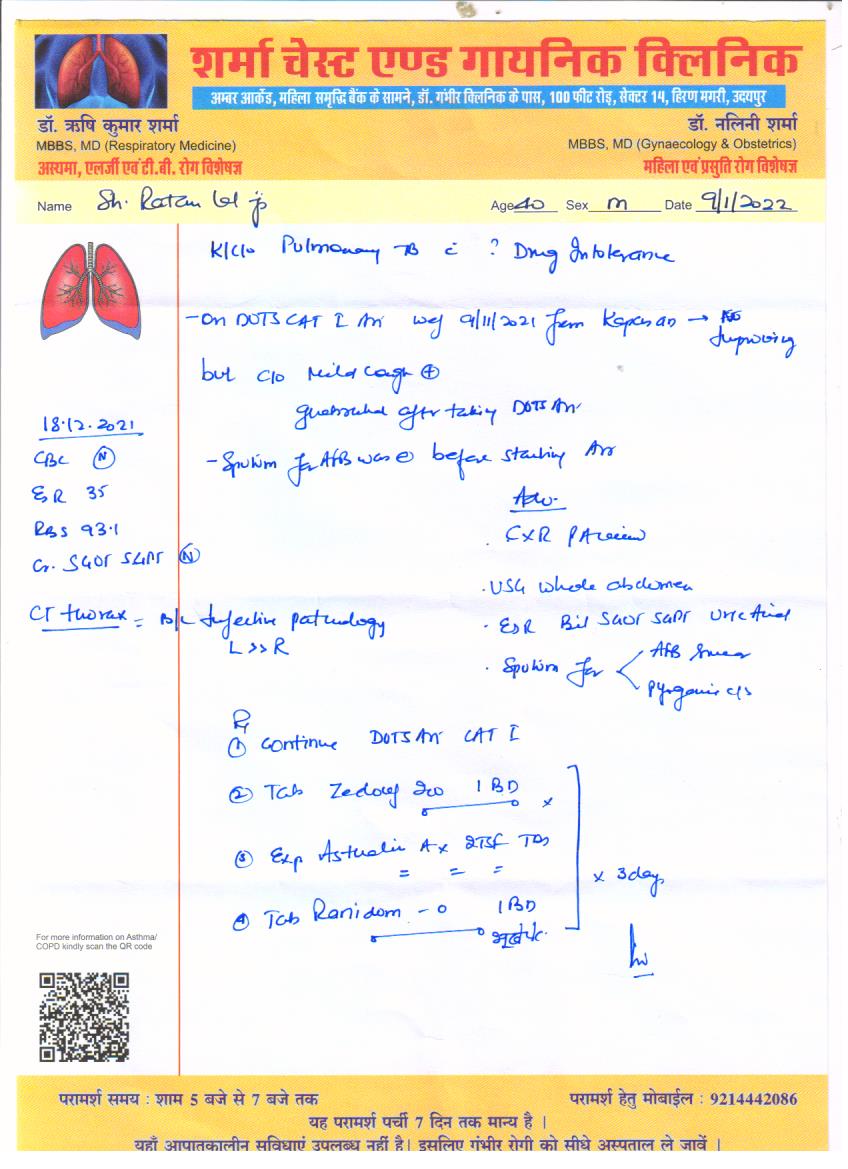 शर्मा चेस्ट एण्ड गायनिक क्लिनिक
अम्बर आर्केड, महिला समृद्धि बैंक के सामने, डॉ. गंभीर क्लिनिक के पास, 100 फीट रोड़, सेक्टर 14, हिरण मगरी, उदयपुर
डॉ. ऋषि कुमार शर्मा
MBBS, MD (Respiratory Medicine)
अस्थमा, एलर्जी एवं टी.बी. रोग विशेषज्ञ
डॉ. नलिनी शर्मा
MBBS, MD (Gynaecology & Obstetrics)
महिला एवं प्रसुति रोग विशेषज्ञ
Name Sh. Ratan lal ji Age 40 Sex M Date 9/1/2022
K/C/O Pulmonary TB c̄ ? Drug Intolerance
- On DOTS CAT I ATT wef 9/11/2021 from Kapasan →
Improving
but C/O Mild Cough ⊕
after taking DOTS ATT
- Sputum for AFB was ⊖ before starting ATT
18.12.2021
CBC Ⓝ
ESR 35
RBS 93.1
Cr. SGOT SGPT Ⓝ
CT thorax = B/L Infective pathology
L >> R
Adv.
. CXR PA view
. USG whole abdomen
. ESR Bil SGOT SGPT Uric Acid
. Sputum for AFB Smear
Pyogenic c/s
Rx
① Continue DOTS ATT CAT I
② Tab 200 1 BD
③ Exp Asthalin AX 2TSF TDS
④ Tab Ranidom - O 1 BD
x 3 days
For more information on Asthma/
COPD kindly scan the QR code
परामर्श समय : शाम 5 बजे से 7 बजे तक
परामर्श हेतु मोबाईल : 9214442086
यह परामर्श पर्ची 7 दिन तक मान्य है ।
यहाँ आपातकालीन सुविधाएं उपलब्ध नहीं है। इसलिए गंभीर रोगी को सीधे अस्पताल ले जावें ।